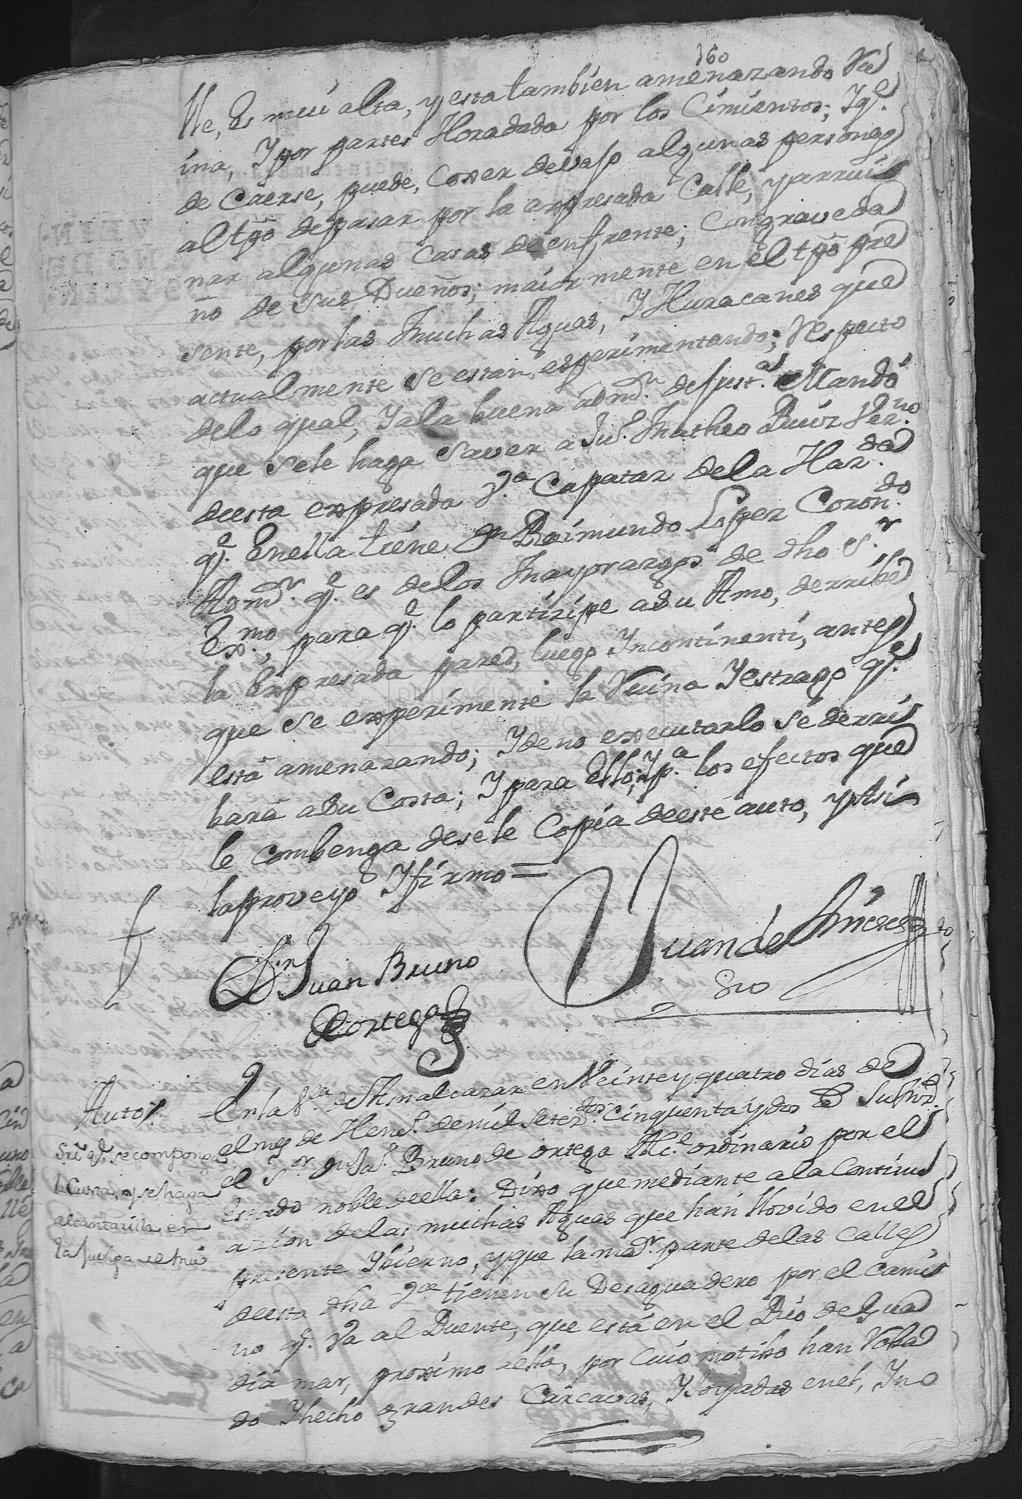 160
lle, Es mui alta, y esta tambien amenazando Ru
ina, Y por partes Horadada por los Cimientos; Y q.e
de Caerse, puede, Coxer devajo algunas personas
al tpõ de pasar por la expresada Calle, y arrui
nar algunas Casas de enfrente; Con grave da
ño de sus Dueños; maiormente en el tpõ pre
sente, por las muchas Aguas, Y Huracanes que
actualmente se estan esperimentando; Respecto
delo qual, Y ala buena adm.on de Just.a Mandó
que sele haga saver a Ju.o Matheo Ruiz Vez.no
de esta expresada V.a Capataz dela Haz.da
q.e En ella tiene D.n Raimundo Lopez Coron.do
Adm.or q.e es delos Mayorazgos de dho S.r
Ex.mo, para q.e lo partizipe a su Amo, derribe
la Expresada pared, luego Incontinenti, antes
que se experimente la Ruina Y estrago q.e
está amenazando; Y de no executarlo se derri
bará a su Costa; Y para ello, Y p.a los efectos que
le combenga desele Copia de este auto, y Asi
lo proveyo Y firmo =
D.n Juan Bruno
de Ortega
Juan de
sno
Auto
q.e se componga
y se haga
alcantarilla en
En la V.a de Aznalcazar en Veinte y quatro dias de
el mes de Hen.o de mil setez.tos Cinquenta y dos el
el S.or D.n Ju.o Bruno de ortega Alc.e ordinario por el
Estado noble de ella: Dixo que mediante a la Continu
azion de las muchas Aguas que han llovido en el
presente Ybierno, y que la ma.or parte de las Calles
de esta dha V.a tienen su Desaguadero por el Cami
no q.e Va al Puente, que está en el Rio de Gua
diamar, proximo a ella, por Cuio motibo han Roba
do Y hecho grandes Carcavas, Y oyadas en el, Y no